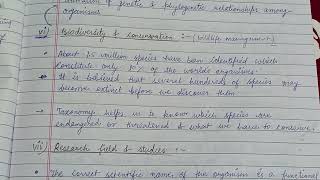 animation of genetic & phylogenetic relationships among
organisms.
vi) Biodiversity & conservation :- (Wildlife management)
• About 1.5 million species have been identified which
constitute only 10% of the worlds organisms.
• It is believed that several hundreds of species may
become extinct before we discover them.
- Taxonomy helps us to know which species are
endangered or threatened & what we have to conserve.
vii) Research field & studies :-
• The correct scientific names of the organism is a functional